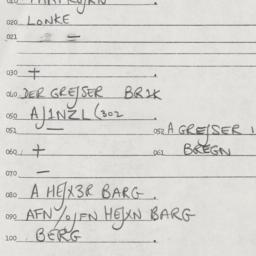 020 LONKE
021 —
030 +
040 DER GREJSER BR1K
050 AJ1NZL(302
051 — 052 A GREJSER 1
060 + 061 BREGN
070 —
080 A HEJX3R BARG
090 AFN%JFN HEJXN BARG
100 BERG